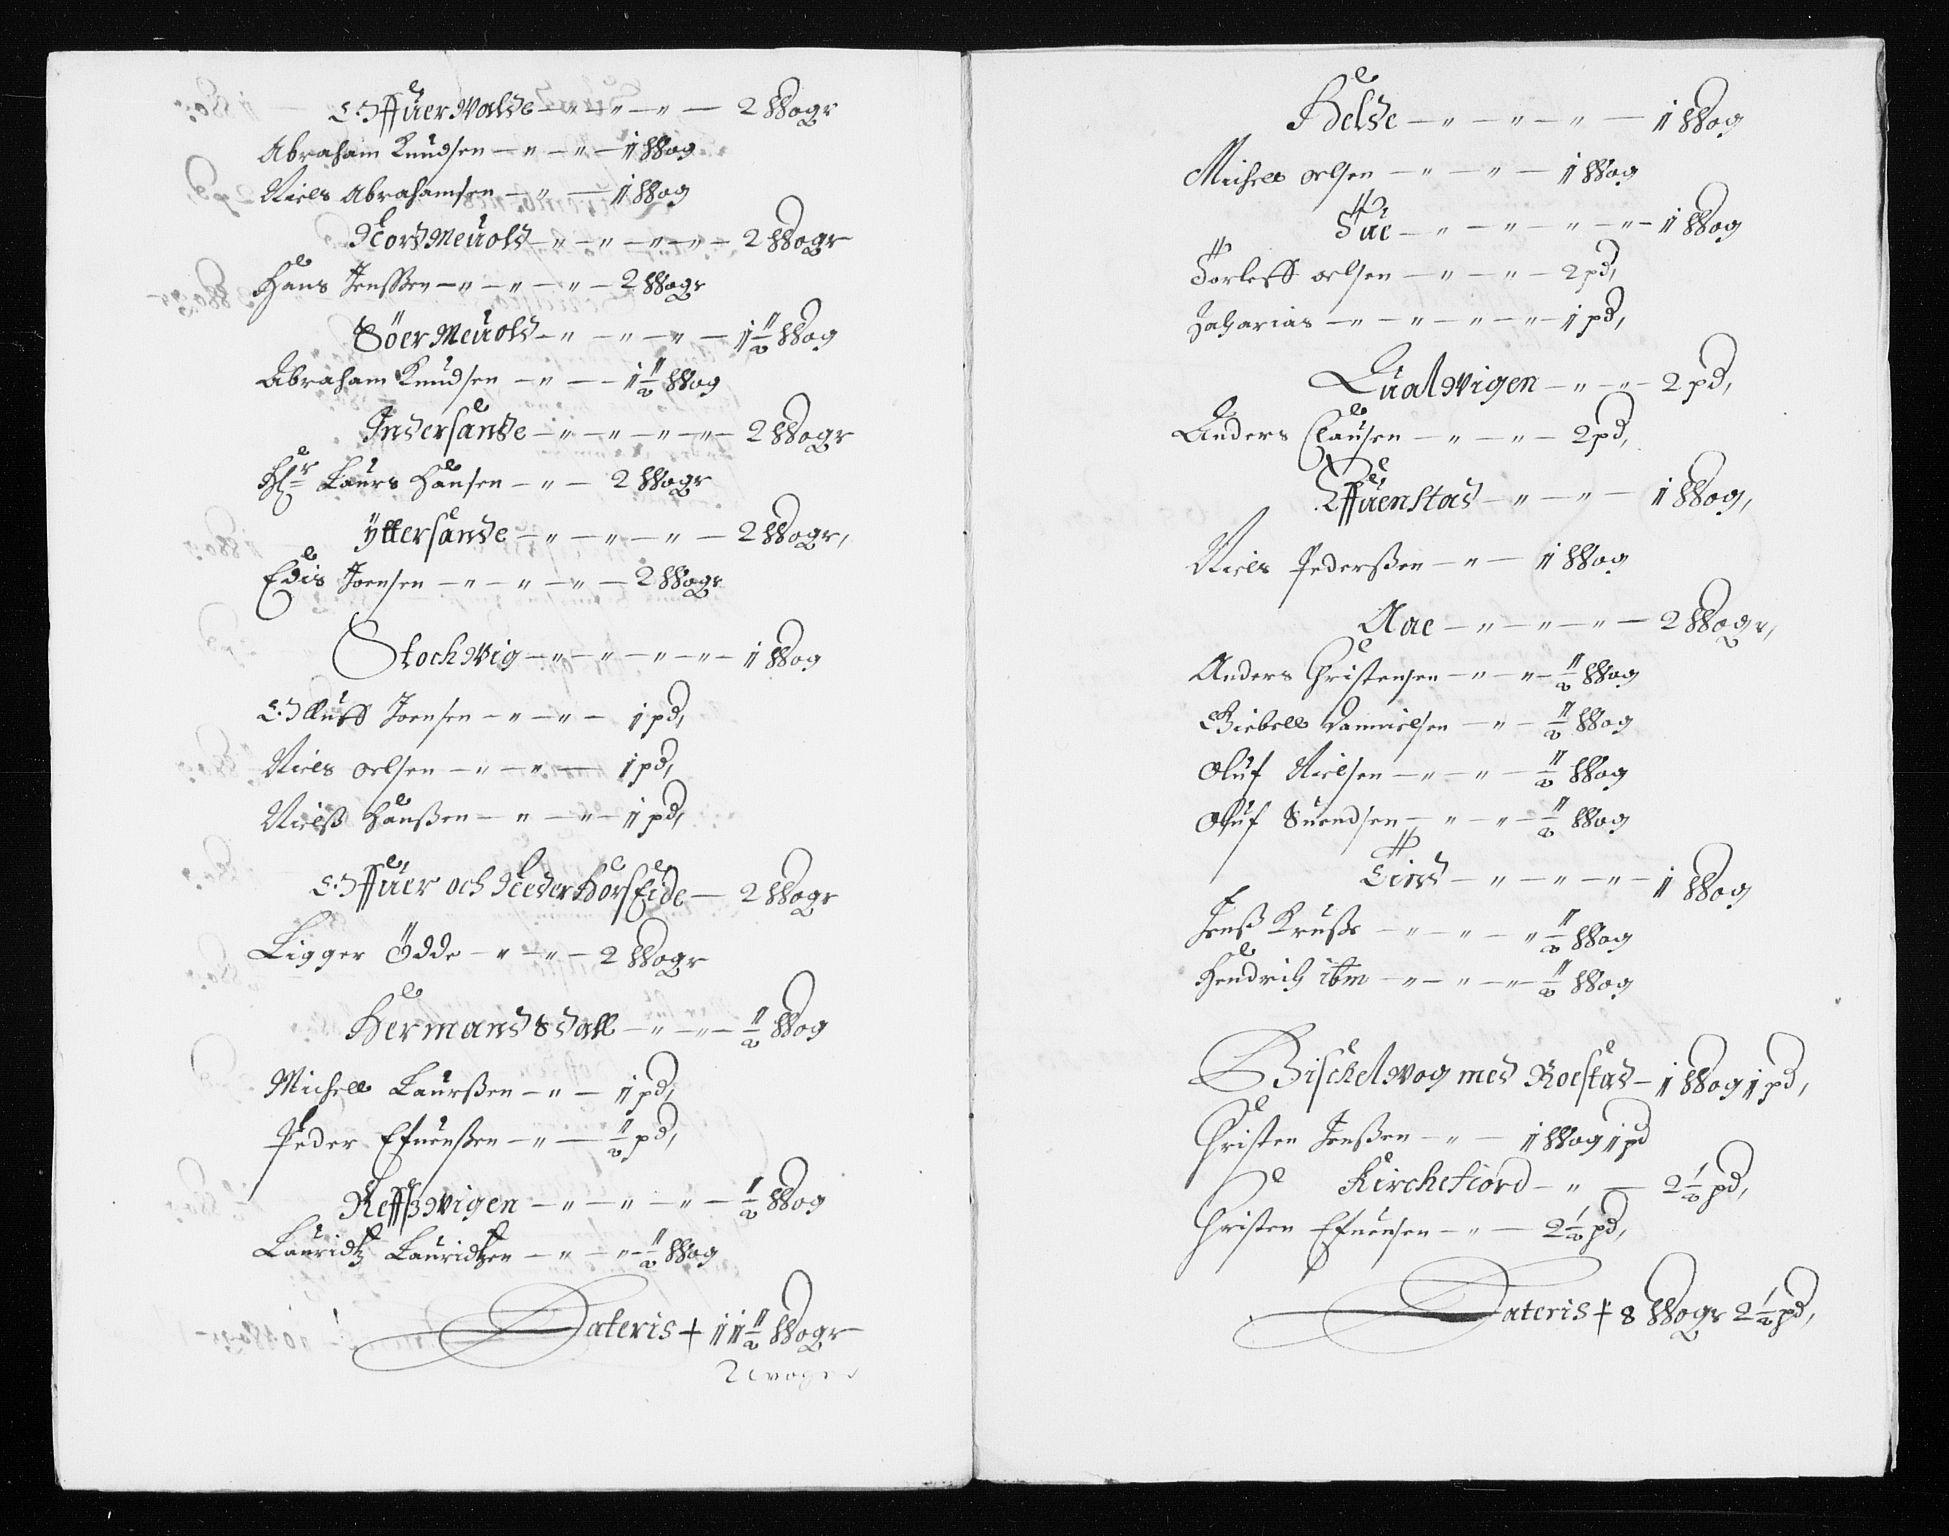 Offuer Malde — " — " — " — 2 Wogr
Abraham Knudsen — " — " — 1 Wog
Niels Abrahamsen — " — 1 Wog
Nord Meuold — " — " — " — " — 2 Wogr
Hans Jenssen — " — " — " — 2 Wogr
Söer Meuold — " — " — " — 1 1/2 Wog
Abraham Knudsen — " — 1 1/2 Wog
Indersande — " — " — " — " — 2 Wogr
Hr Laurs Hansen — " — 2 Wogr
Yttersande — " — " — " — 2 Wogr,
Edis Joensen — " — " — " — 2 Wogr
Stochwig — " — " — " — " — 1 Wog
Oluff Joensen — " — " — 1 pd,
Niels Oelsen — " — " — 1 pd,
Nielß Hanßen — " — " — 1 pd,
Offuer och Neder HorsEide — 2 Wogr
Ligger Ödde — " — " — 2 Wogr
Hermandsdall — " — " — 1/2 Wog
Michell Laurßen — " — 1 pd,
Peder Efuenßen — " — 1/2 pd,
Reffßwigen — " — " — " — 1/2 Wog
Lauridtz Lauridtzen — " — " — 1/2 Wog
Lateris + 11 1/2 Wogr
2 woger
Helde — " — " — " — 1 Wog
Michell Oelsen — " — " — 1 Wog
Tue — " — " — " — " — 1 Wog
Torleff Oelsen — " — " — 2 pd,
Zacharias — " — " — " — " — 1 pd,
Qualwigen — " — " — 2 pd,
Anders Clausen — " — " — 2 pd,
Effuenstad — " — " — 1 Wog,
Niels Pederßen — " — 1 Wog
Aae — " — " — " — 2 Wogr,
Anders Christensen — " — " — 1/2 Wog
Giebell Dannielsen — " — 1/2 Wog
Oluf Nielsen — " — " — 1/2 Wog
Oluf Suendsen — " — " — 1/2 Wog
Tind — " — " — " — 1 Wog
Jenß Krusse — " — " — " 1/2 Wog
Hendrich ibm — " — " — " — 1/2 Wog
Bischelwog med Roestad — 1 Wog 1 pd,
Christen Jenßen — " — 1 Wog 1 pd
Kirchefiord — " — 2 1/2 pd,
Christen Efuensen — " — 2 1/2 pd,
Lateris + 8 Wogr 2 1/2 pd,